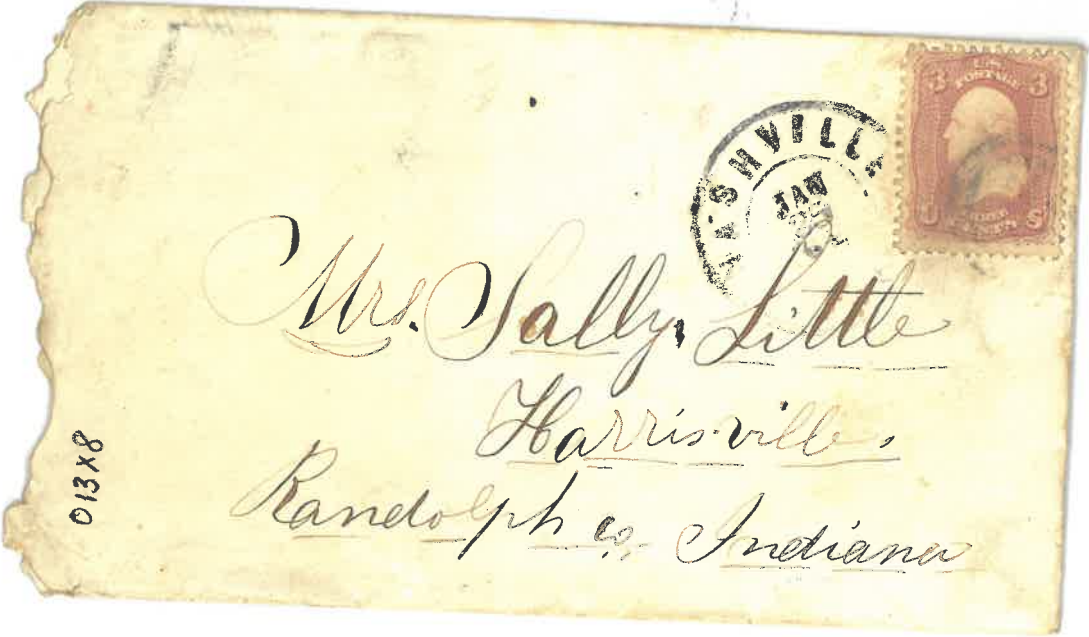 U.S.
POSTAGE
3 3
THREE
CENTS
U S
NASHVILLE
JAN
Mrs. Sally, Little
Harrisville,
Randolph co, Indiana
013x8